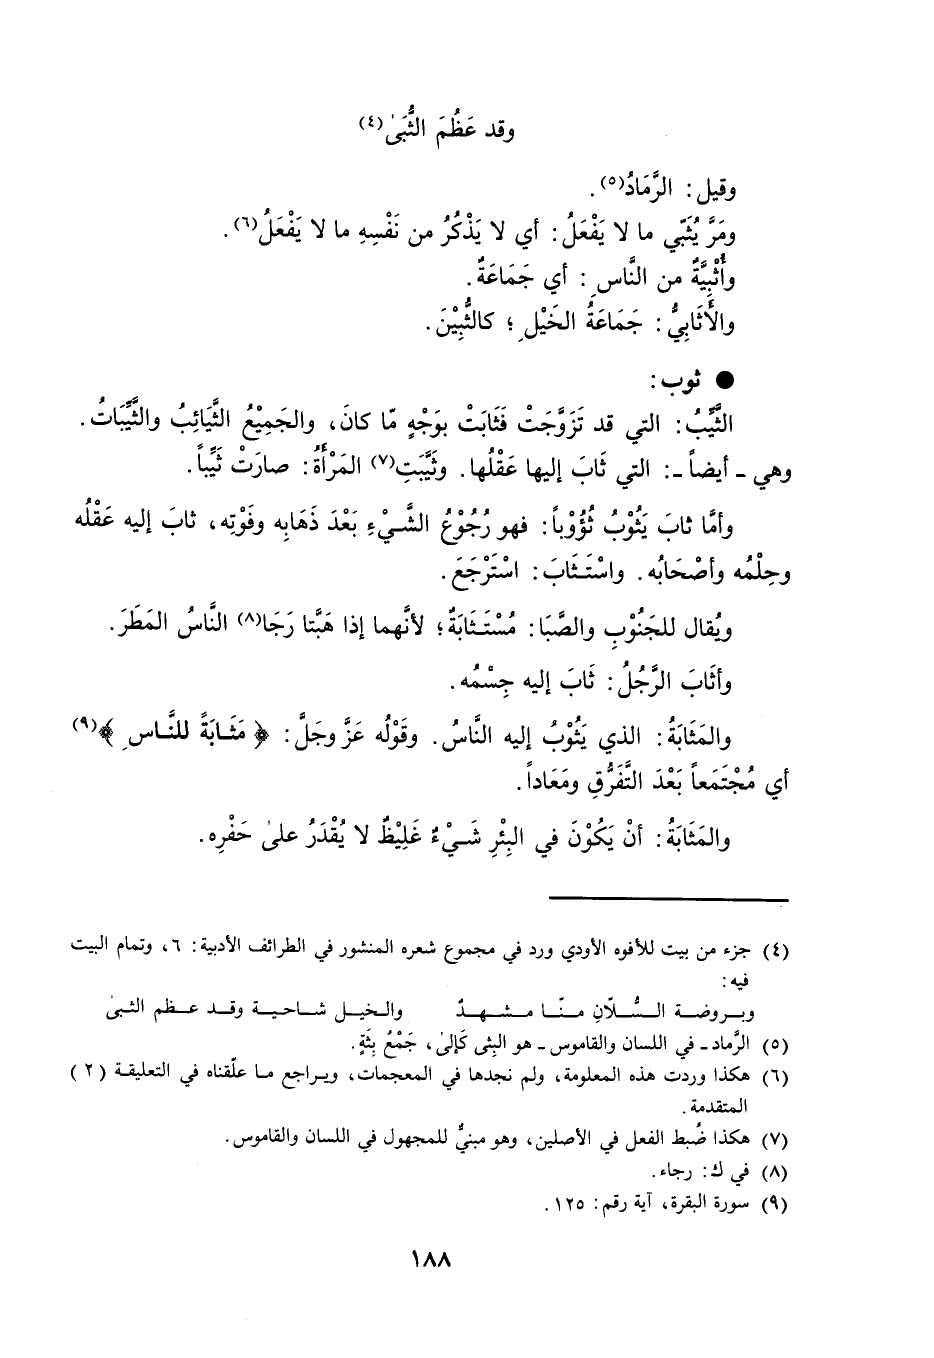 وقد عَظُمَ الثُّبَىٰ(٤)
وقيل: الرَّمَادُ(٥).
ومَرَّ يُثَبّي ما لا يَفْعَلُ: أي لا يَذْكُرُ من نَفْسِهِ ما لا يَفْعَلُ(٦).
وأُثْبِيَّةٌ من النَّاسِ: أي جَمَاعَةٌ.
والأَثَابِيُّ: جَمَاعَةُ الخَيْلِ؛ كالثُّبِيْنَ.
● ثوب:
الثَّيِّبُ: التي قد تَزَوَّجَتْ فَثَابَتْ بوَجْهٍ مّا كانَ، والجَمِيْعُ الثَّيَائِبُ والثَّيِّبَاتُ.
وهي - أيضاً -: التي ثَابَ إليها عَقْلُها. وثَيَّبَتِ(٧) المَرْأَةُ: صارَتْ ثَيِّباً.
وأمَّا ثابَ يَثُوْبُ ثُؤُوْباً: فهو رُجُوْعُ الشَّيْءِ بَعْدَ ذَهَابِه وفَوْتِه، ثابَ إليه عَقْلُه
وحِلْمُه وأصْحَابُه. واسْتَثَابَ: اسْتَرْجَعَ.
ويُقال للجَنُوْبِ والصَّبَا: مُسْتَثَابَةٌ؛ لأنَّهما إذا هَبَّتا رَجَا(٨) النَّاسُ المَطَرَ.
وأثَابَ الرَّجُلُ: ثَابَ إليه جِسْمُه.
والمَثَابَةُ: الذي يَثُوْبُ إليه النَّاسُ. وقَوْلُه عَزَّ وجَلَّ: ﴿مَثَابَةً للنَّاسِ﴾(٩)
أي مُجْتَمَعاً بَعْدَ التَّفَرُّقِ ومَعَاداً.
والمَثَابَةُ: أنْ يَكُوْنَ في البِئْرِ شَيْءٌ غَلِيْظٌ لا يُقْدَرُ علىٰ حَفْرِه.
(٤) جزء من بيت للأفوه الأودي ورد في مجموع شعره المنشور في الطرائف الأدبية: ٦، وتمام البيت
فيه:
وبروضة السُّلّانِ منّا مشهدٌ والخيل شاحية وقد عظم الثبىٰ
(٥) الرَّماد - في اللسان والقاموس - هو البِثى كَإلىٰ، جَمْعُ بِثَةٍ.
(٦) هكذا وردت هذه المعلومة، ولم نجدها في المعجمات، ويراجع ما علّقناه في التعليقة (٢)
المتقدمة.
(٧) هكذا ضُبط الفعل في الأصلين، وهو مبنيٌّ للمجهول في اللسان والقاموس.
(٨) في ك: رجاء.
(٩) سورة البقرة، آية رقم: ١٢٥.
١٨٨